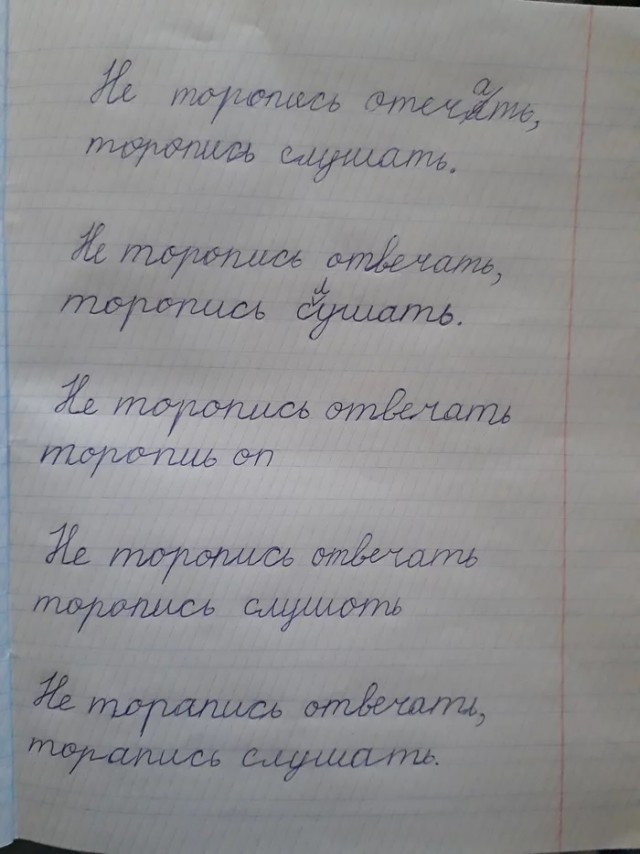 Не торопись отечать,
торопись слушать.
Не торопись отвечать,
торопись слушать.
Не торопись отвечать
торопиь оп
Не торопись отвечать
торопись слушоть
Не торапись отвечать,
торапись слушать.